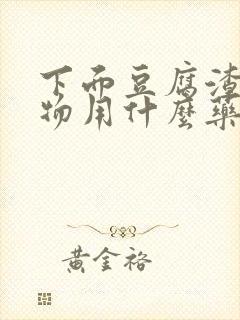 下而豆腐渣
物用什麼藥
黃金裕